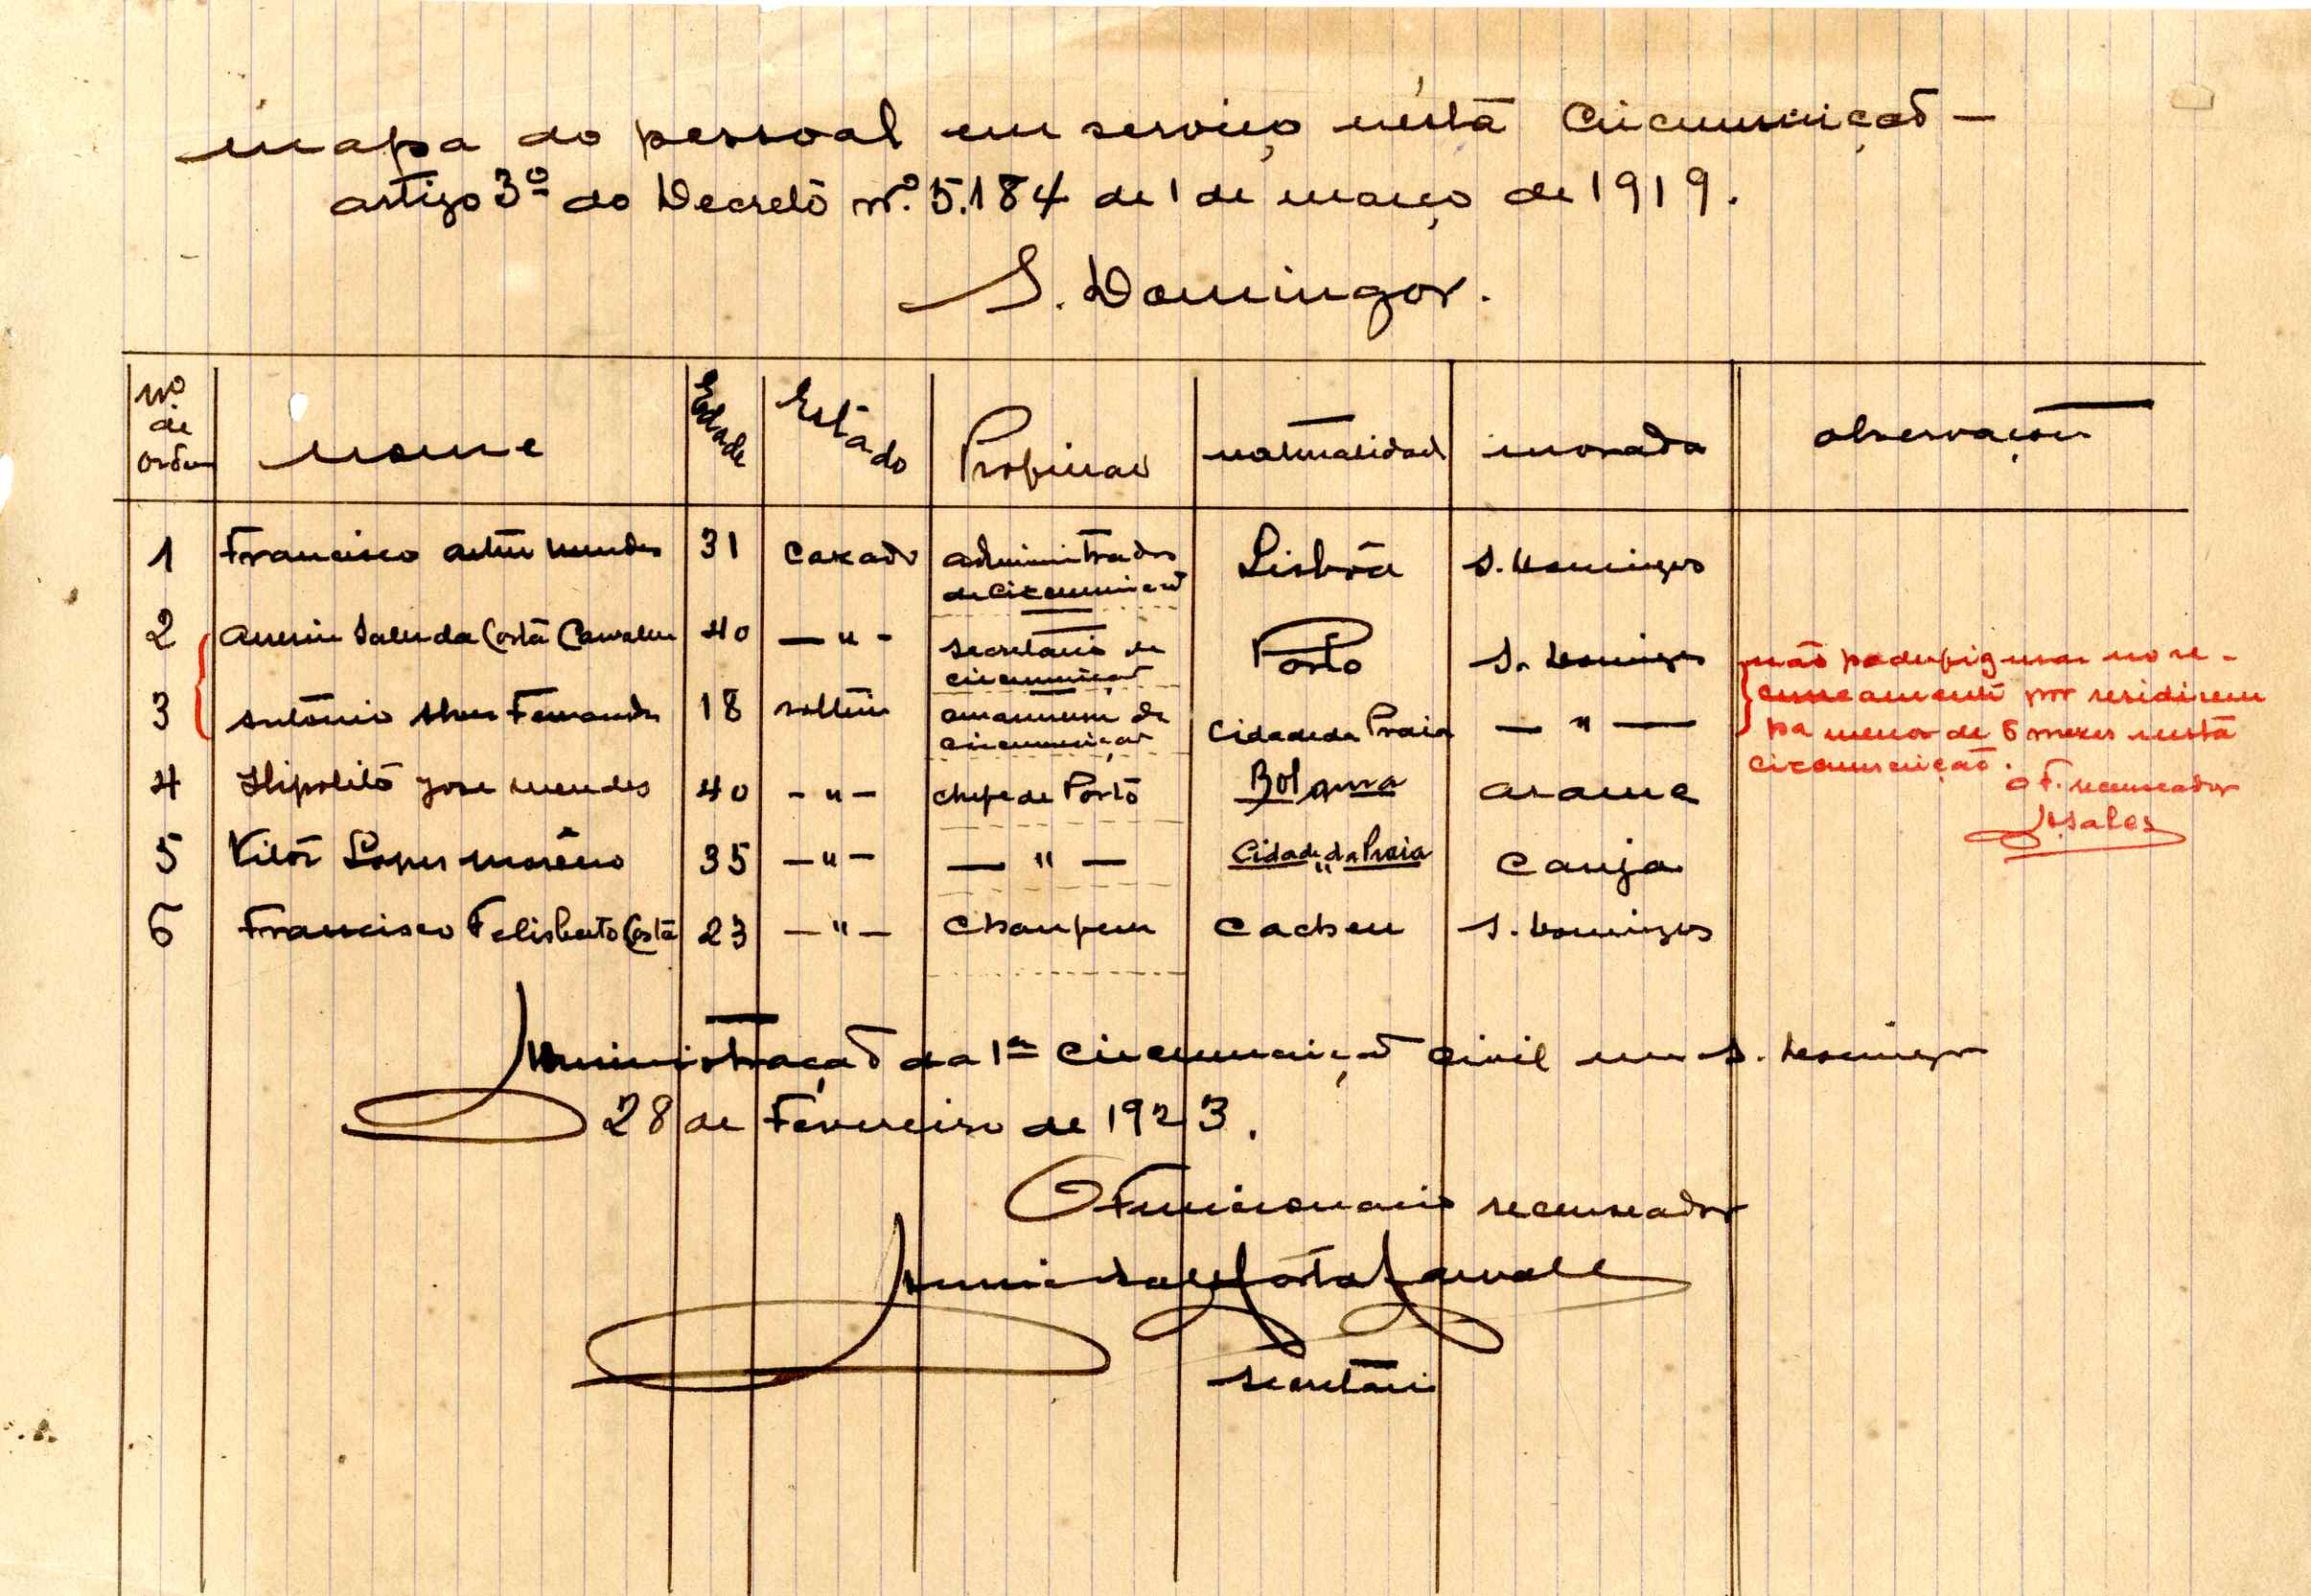 mapa do pessoal em serviço nesta Circunscrição -
artigo 3º do Decreto nº. 5.184 de 1 de março de 1919.
S. Domingos.
Nº de ordem nome Edade Estado Profissão naturalidade morada observações
1 Francisco Artur Mendes 31 casado administrador de circunscrição Lisbôa S. Domingos
2 Sales da Costa Carvalho 40 — " — secretario de circunscrição Porto S. Domingos
3 António Alves Fernandes 18 solteiro amanuense de circunscrição Cidade da Praia — " —
não podem figurar no re-
censeamento por residirem
ha menos de 6 mezes nesta
circunscrição.
O F. recenseador
Sales
4 Hipolito José Mendes 40 - " - chefe de Posto Bolama Arame
5 Vitor Lopes Moreno 35 - " - — " — Cidade da Praia Canja
6 Francisco Felisberto Costa 23 - " - Cacheu S. Domingos
Administração da 1ª circunscrição civil em S. Domingos
28 de Fevereiro de 1923.
O Funcionario recenseador
Sales Costa Carvalho
Secretario